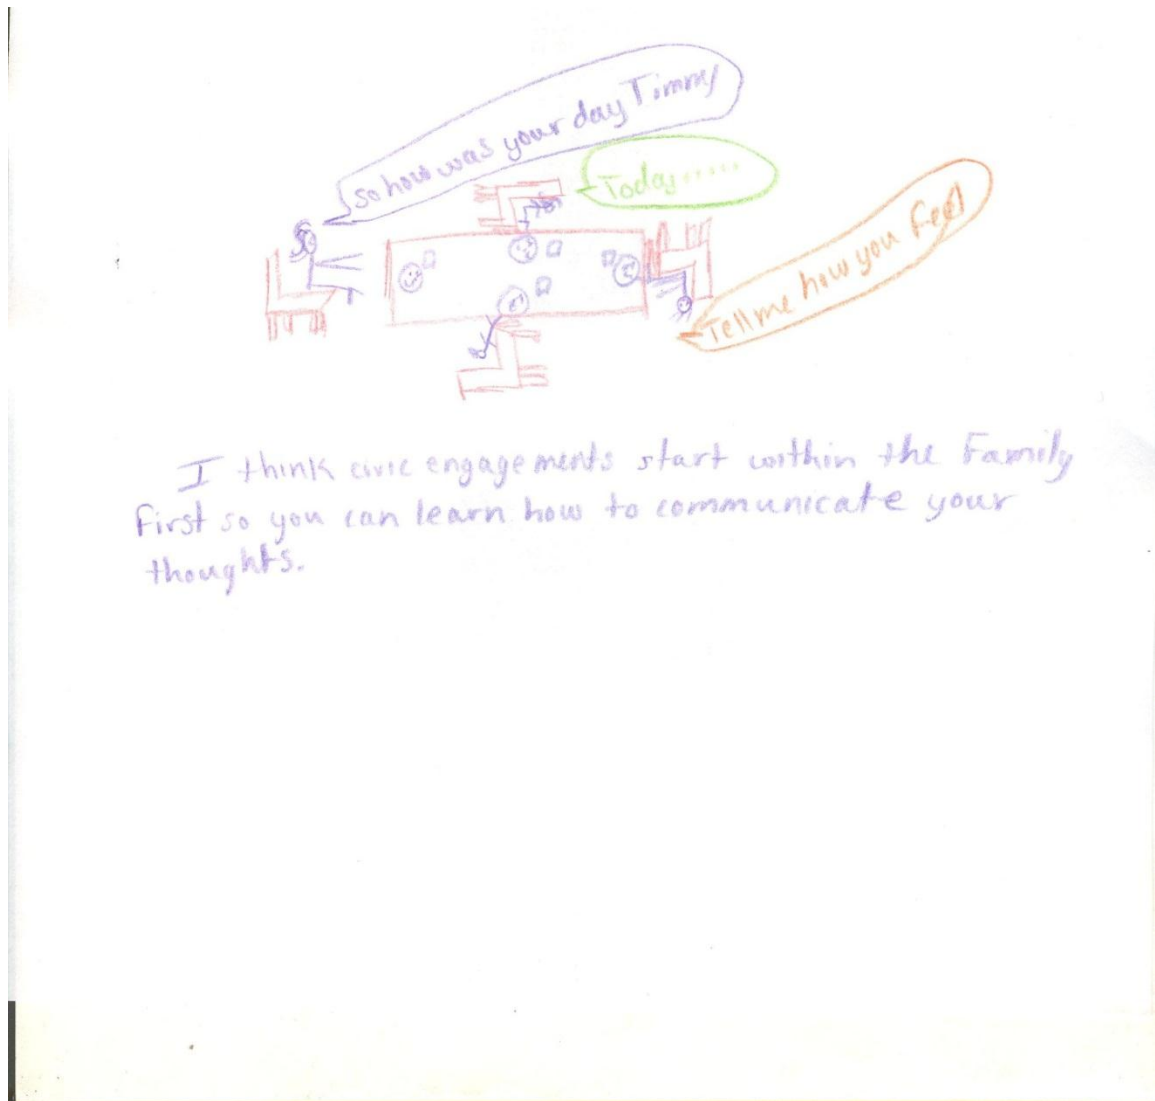 so how was your day Timmy
Today.....
Tell me how you feel
I think civic engagements start within the Family
First so you can learn how to communicate your
thoughts.